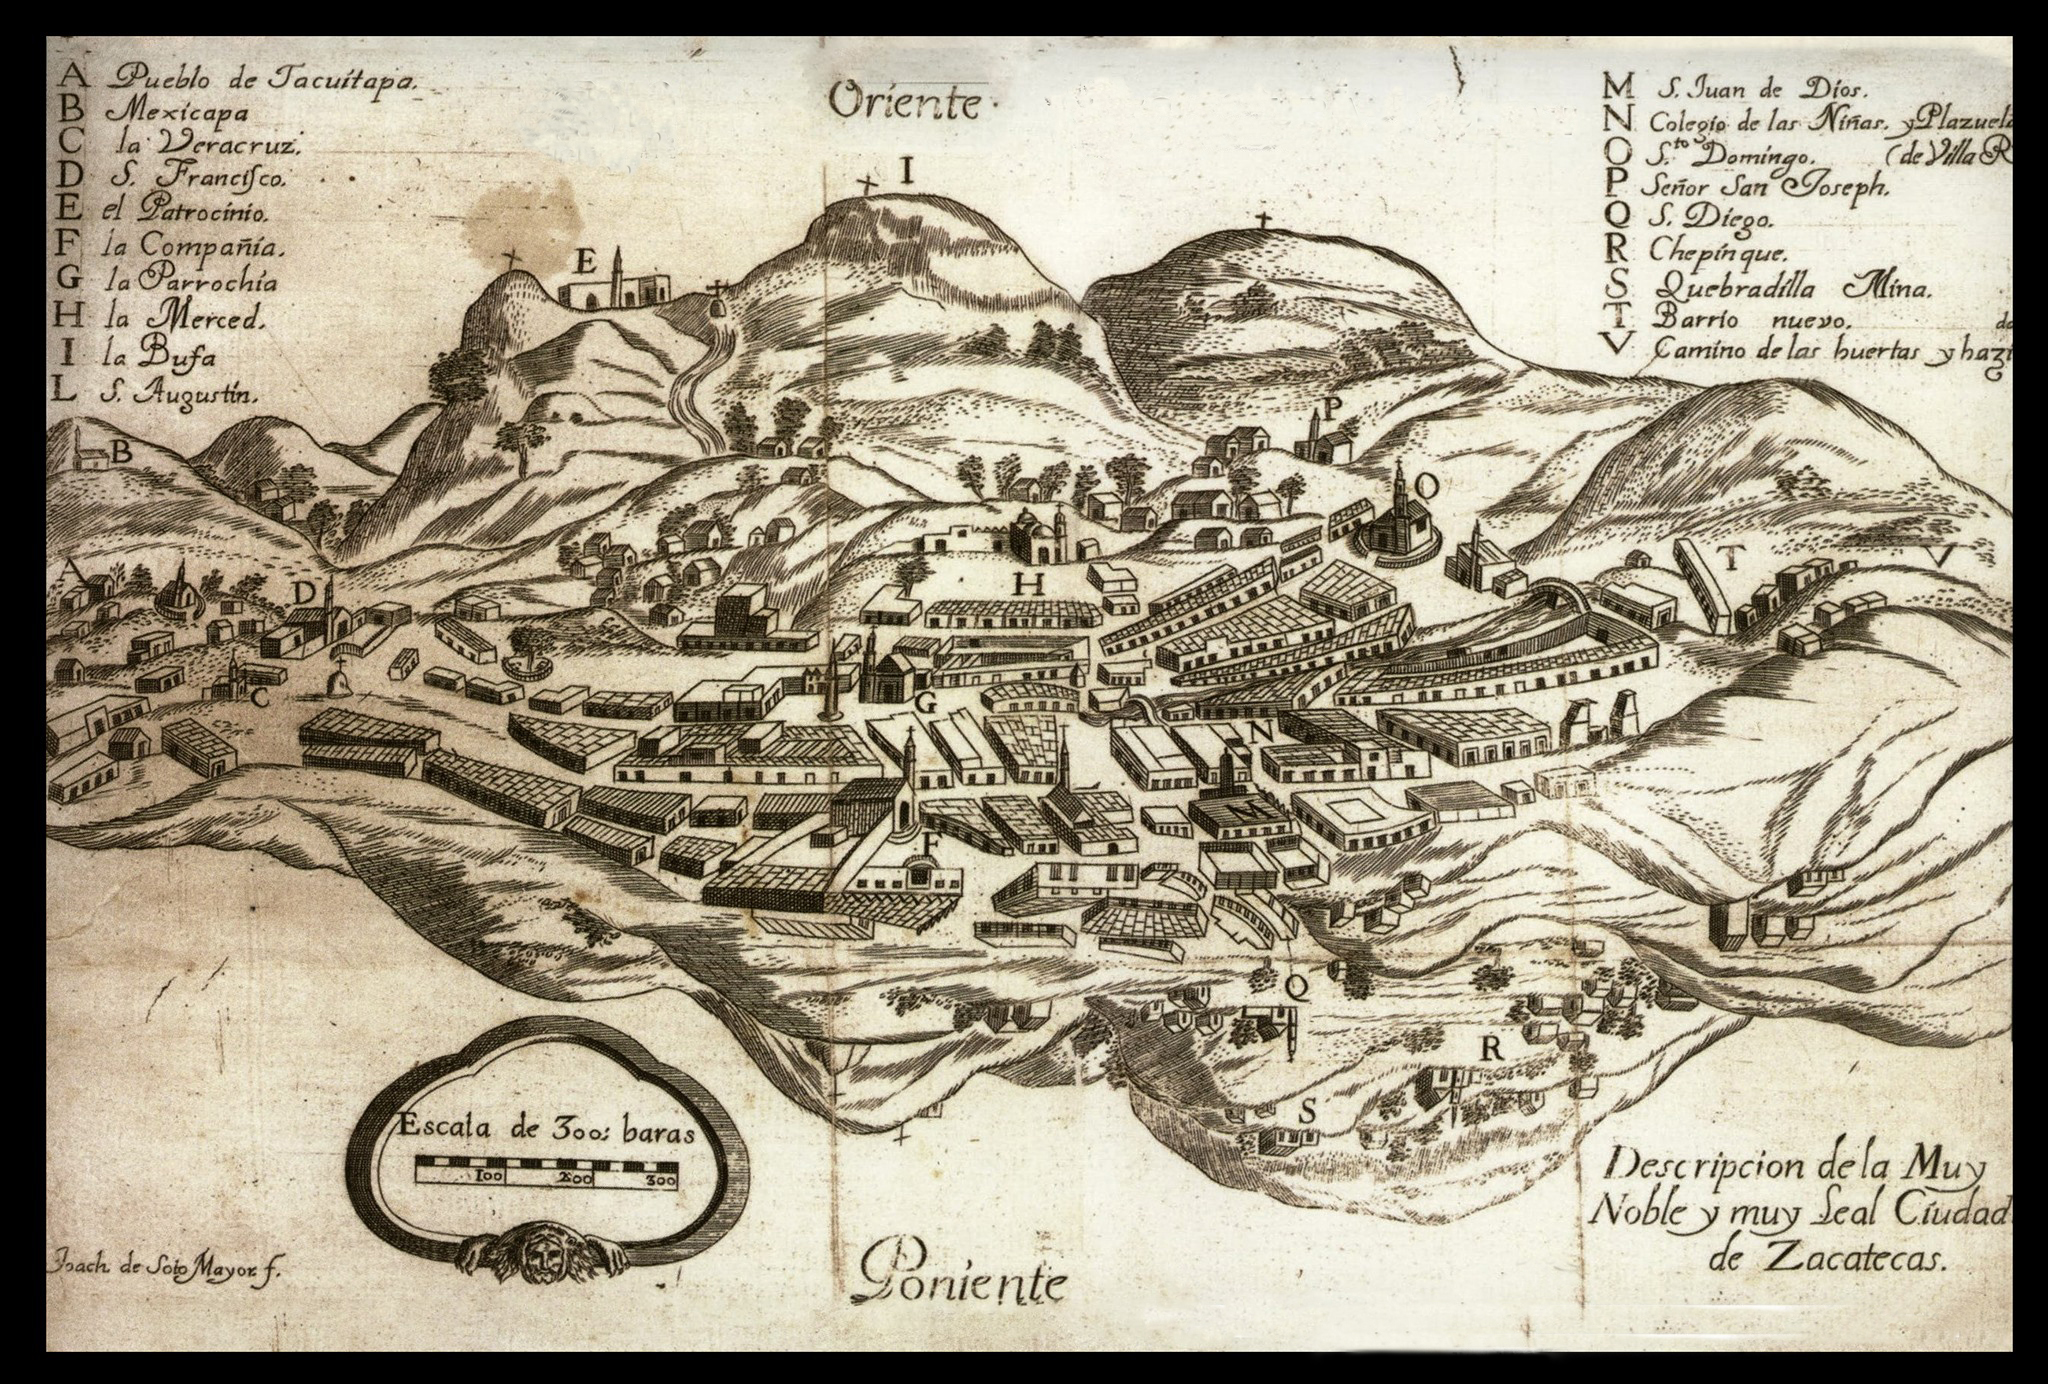 A Pueblo de Tacuitapa.
B Mexicapa
C la Veracruz.
D S. Francisco.
E el Patrocinio.
F la Compañía.
G la Parrochia
H la Merced.
I la Bufa
L S. Augustin.
Oriente.
M S. Juan de Dios.
N Colegio de las Niñas. y Plazuela
O S.to Domingo. (de Villa R
P Señor San Joseph.
Q S. Diego.
R Chepinque.
S Quebradilla Mina.
T Barrio nuevo.
V Camino de las huertas y hazi
I
E
B
P
O
A
D
H
T
V
C
G
N
M
F
Q
R
S
Escala de 300: baras
100 200 300
Joach. de Soto Mayor f.
Poniente
Descripcion de la Muy
Noble y muy Leal Ciudad
de Zacatecas.